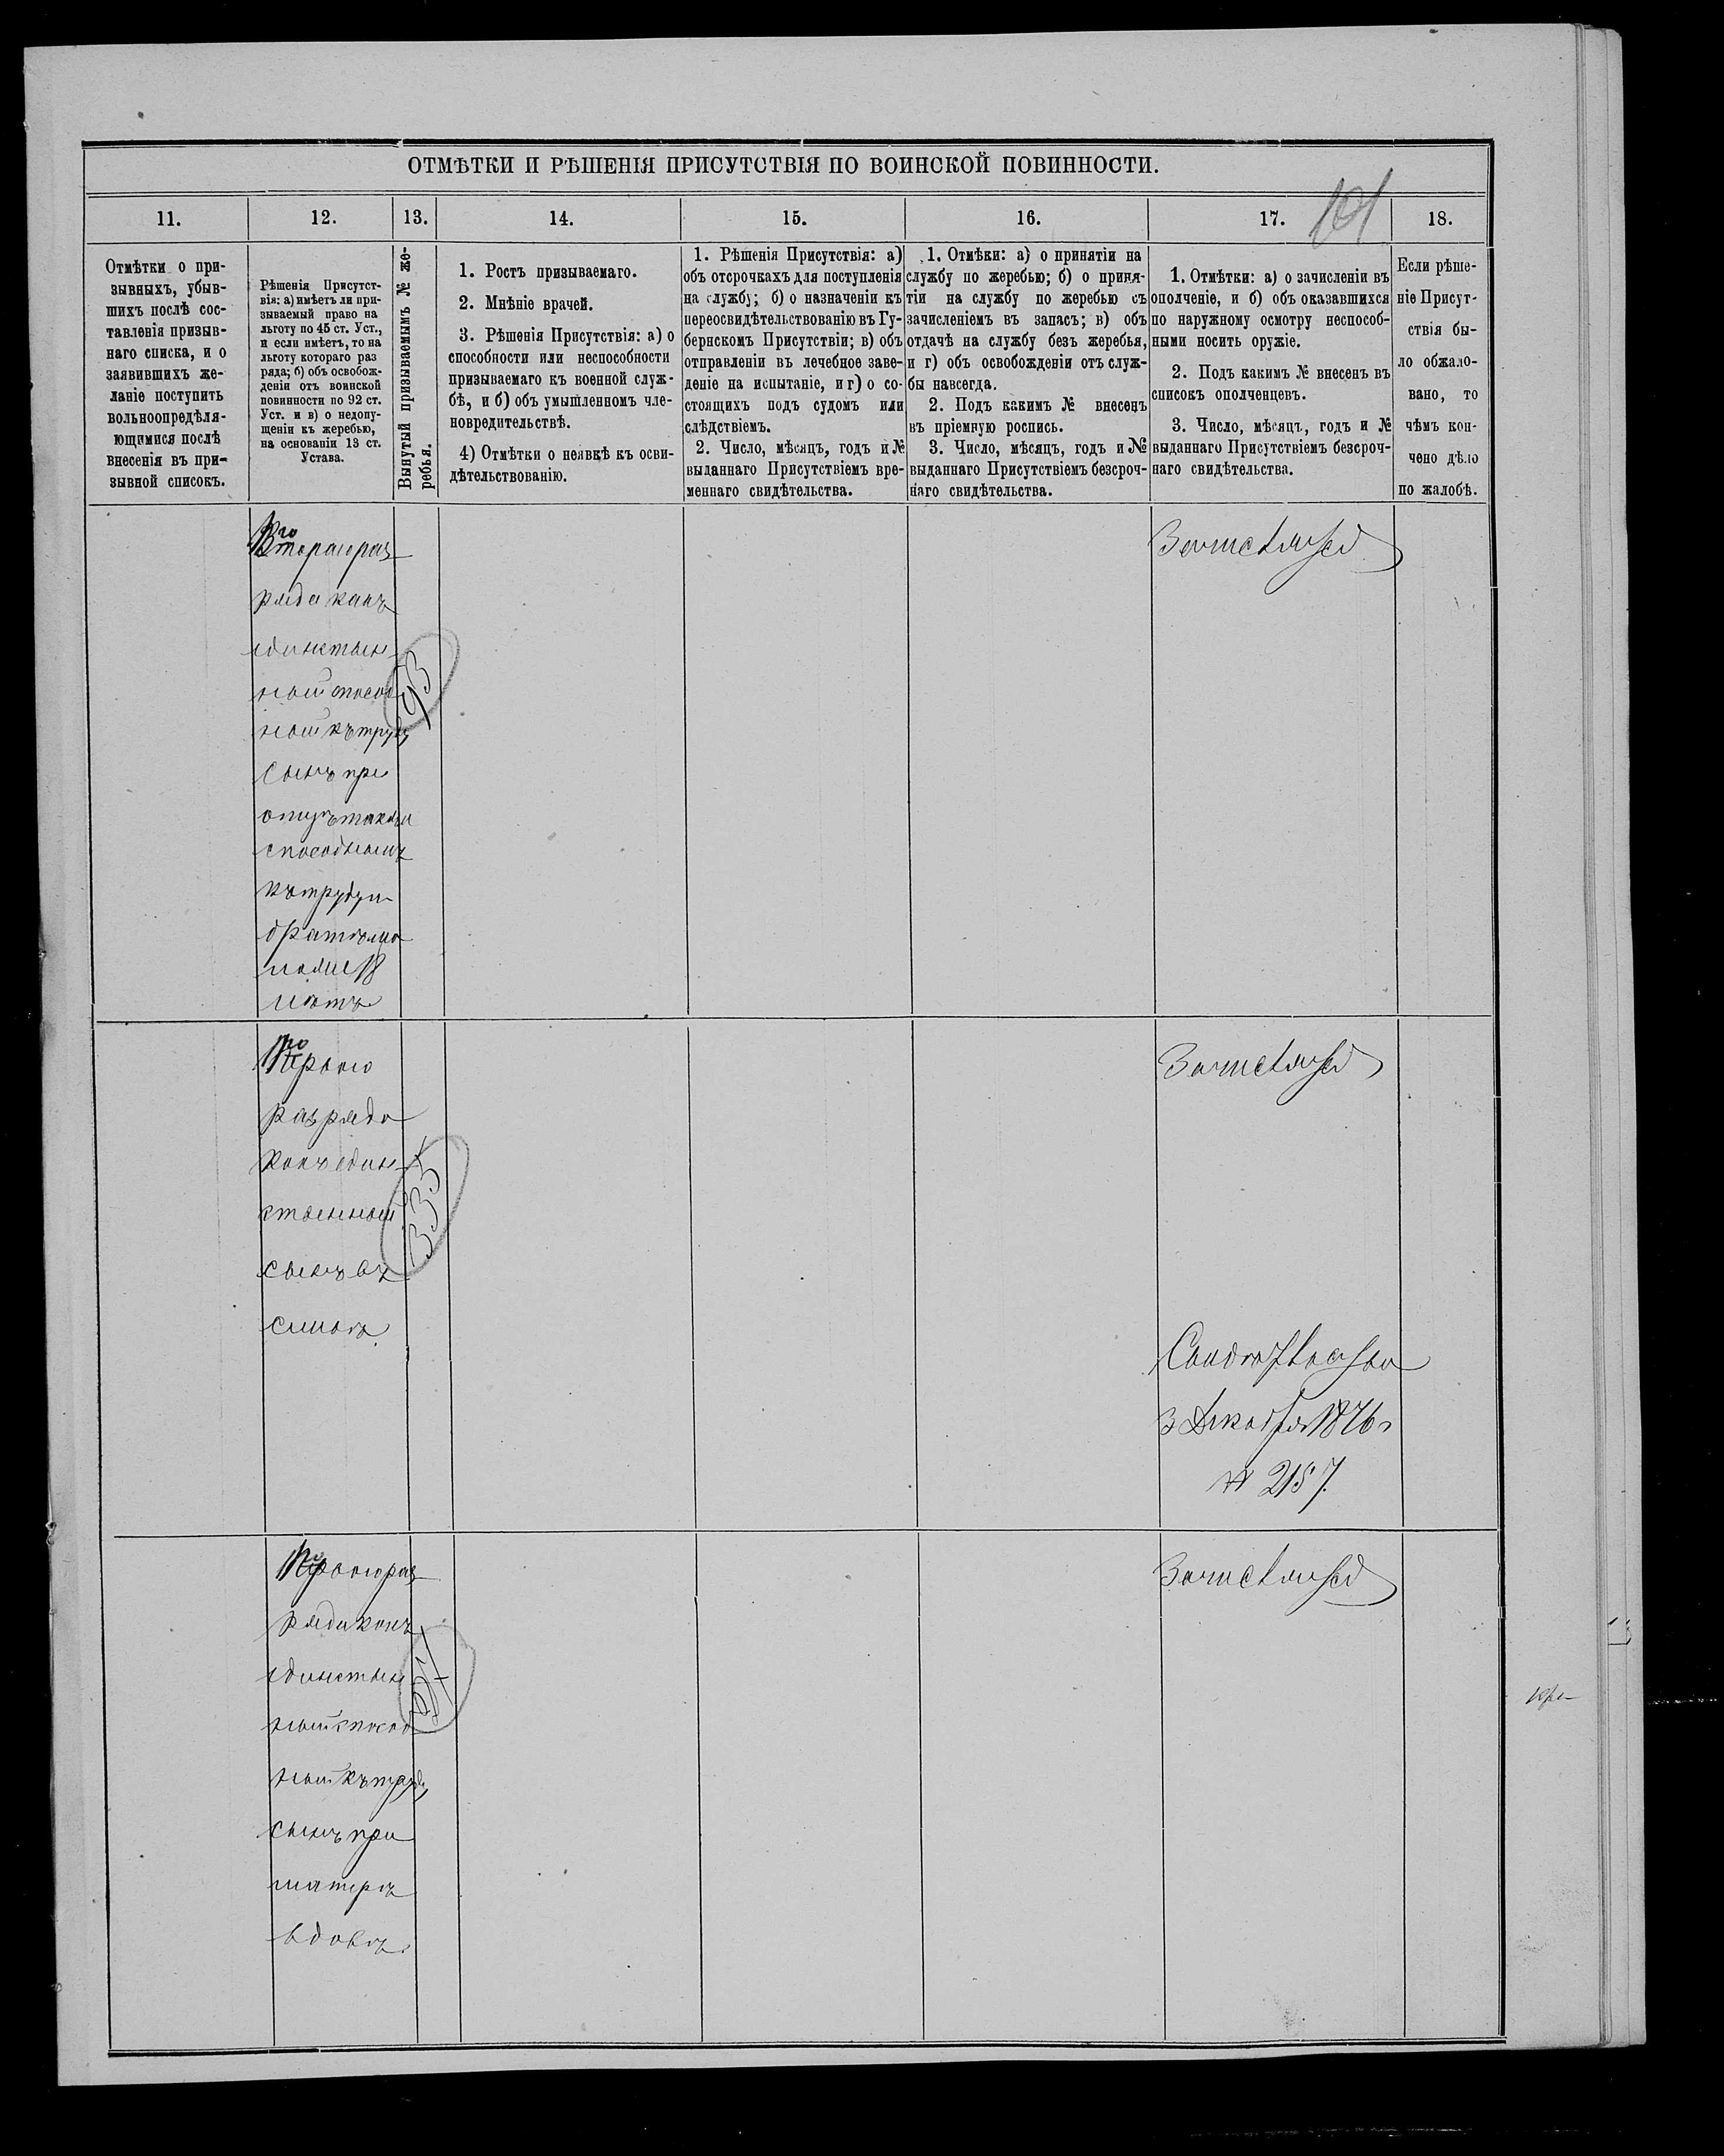 ОТМѢТКИ И РѢШЕНІЯ ПРИСУТСТВІЯ ПО ВОИНСКОЙ ПОВИННОСТИ.
101
11.
12.
13.
14.
15.
16.
17.
18.
Отмѣтки о при-
зывныхъ, убыв-
шихъ послѣ сос-
тавленія призыв-
наго списка, и о
заявившихъ же-
ланіе поступить
вольноопредѣля-
ющимися послѣ
внесенія въ при-
зывной списокъ.
Рѣшенія Присутст-
вія: а) имѣетъ ли при-
зываемый право на
льготу по 45 ст. Уст.,
и если имѣетъ, то на
льготу котораго раз
ряда; б) объ освобож-
деніи отъ воинской
повинности по 92 ст.
Уст. и в) о недопу-
щеніи къ жеребью,
на основаніи 13 ст.
Устава.
Вынутый призываемымъ № же-
ребья.
1. Ростъ призываемаго.
2. Мнѣніе врачей.
3. Рѣшенія Присутствія: а) о
способности или неспособности
призываемаго къ военной служ-
бѣ, и б) объ умышленномъ чле-
новредительствѣ.
4) Отмѣтки о неявкѣ къ осви-
дѣтельствованію.
1. Рѣшенія Присутствія: а)
объ отсрочкахъ для поступленія
на службу; б) о назначеніи къ
переосвидѣтельствованію въ Гу-
бернскомъ Присутствіи; в) объ
отправленіи въ лечебное заве-
деніе на испытаніе, и г) о со-
стоящихъ подъ судомъ или
слѣдствіемъ.
2. Число, мѣсяцъ, годъ и №
выданнаго Присутствіемъ вре-
меннаго свидѣтельства.
1. Отмѣки: а) о принятіи на
службу по жеребью; б) о приня-
тіи на службу по жеребью съ
зачисленіемъ въ запасъ; в) объ
отдачѣ на службу безъ жеребья,
и г) объ освобожденіи отъ служ-
бы навсегда.
2. Подъ какимъ № внесенъ
въ пріемную роспись.
3. Число, мѣсяцъ, годъ и №
выданнаго Присутствіемъ безсроч-
наго свидѣтельства.
1. Отмѣтки: а) о зачисленіи въ
ополченіе, и б) объ оказавшихся
по наружному осмотру неспособ-
ными носить оружіе.
2. Подъ какимъ № внесенъ въ
списокъ ополченцевъ.
3. Число, мѣсяцъ, годъ и №
выданнаго Присутствіемъ безсроч-
наго свидѣтельства.
Если рѣше-
ніе Присут-
ствія бы-
ло обжало-
вано, то
чѣмъ кон-
чено дѣло
по жалобѣ.
Втораго раз
ряда какъ
единствен
ный способ
ный къ труду
сынъ при
отцѣ также
способномъ
къ труду и
братьями
моложе 18
лѣтъ
93
Перваго
разряда
какъ един
ственный
сынъ въ
семьѣ
335
3 Декабря 1876 г
№ 2157.
Перваго раз
ряда какъ
единствен
ный способ
ный къ труду
сынъ при
матери
вдовѣ